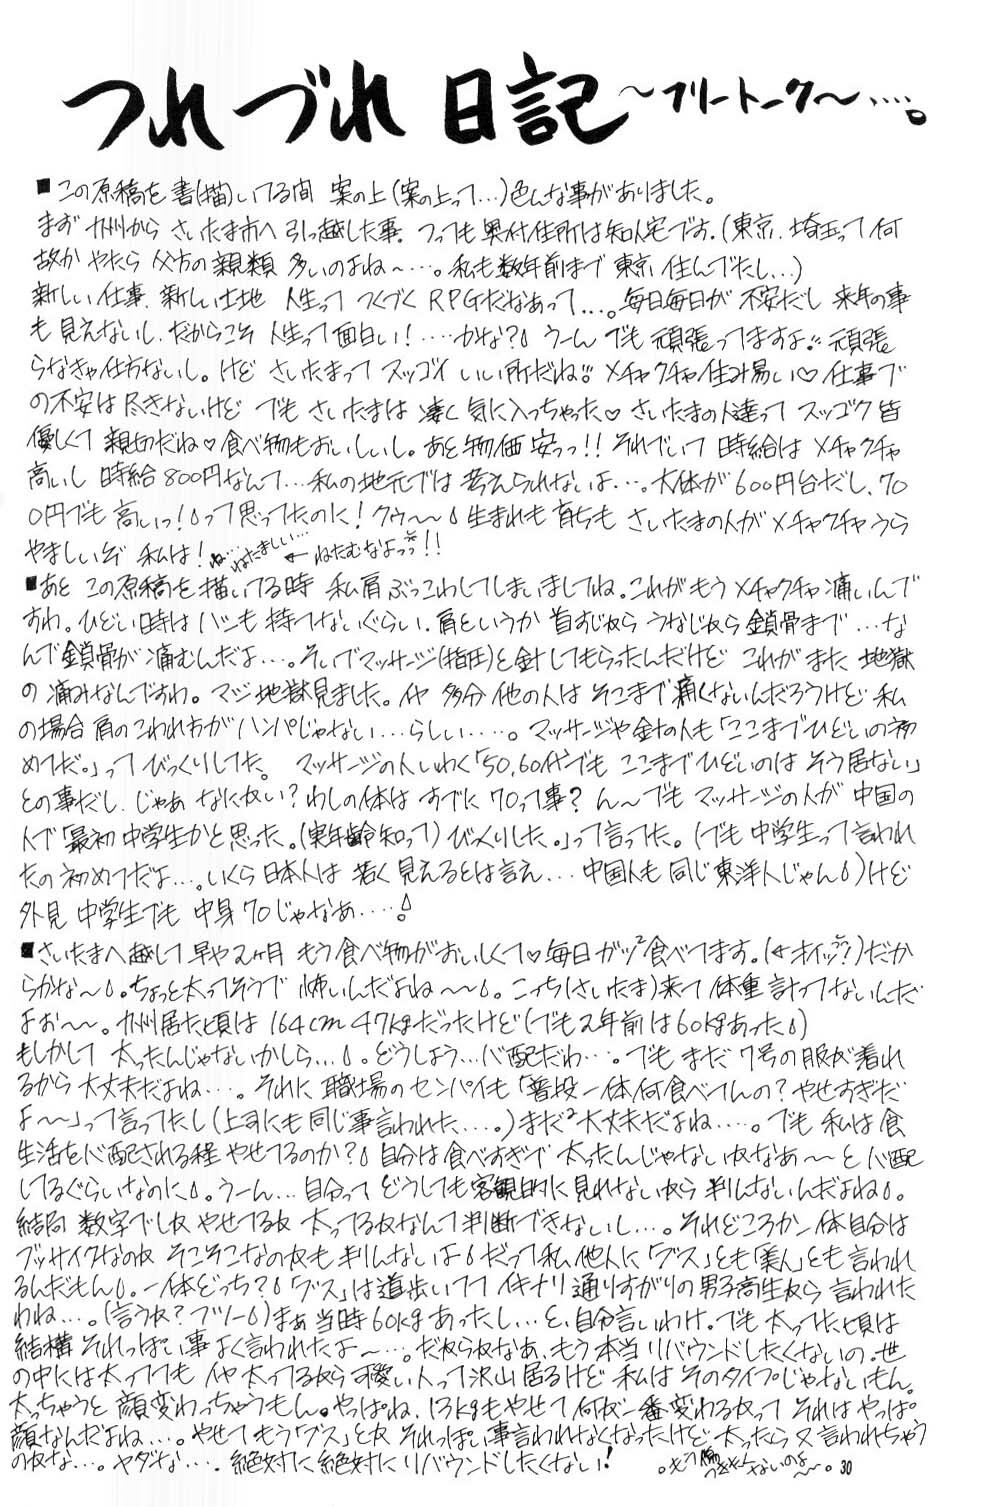 つれづれ日記 ～フリートーク～‥‥。
■この原稿を書(描)いてる間 案の上(案の上って…)色んな事がありました。
まず 九州から さいたま市へ 引っ越した事。つっても 奥付住所は知人宅です。(東京、埼玉って何
故か やたら 父方の親類 多いのよね～…。私も数年前まで 東京 住んでたし…)
新しい仕事、新しい土地 人生って つくづく RPGだなあって…。毎日毎日が 不安だし 来年の事
も 見えないし、だからこそ 人生って面白い！‥‥かな？ うーん でも 頑張ってますよ!! 頑張
らなきゃ仕方ないし。けど さいたまって スッゴイ いい所だね!! メチャクチャ住み易い♡ 仕事で
の不安は 尽きないけど でも さいたまは 凄く 気に入っちゃった♡ さいたまの人達って スッゴク皆
優しくて 親切だね♡ 食べ物もおいしいし。あと物価 安っっ！！それでいて 時給は メチャクチャ
高いし 時給800円なんて…私の地元では 考えられないよ…。大体が 600円台だし、70
0円でも 高いっ！って思ってたのに！クゥ～～ 生まれも育ちも さいたまの人が メチャクチャうら
やましいぞ 私は！ ね… ねたましい… ← ねたむなよっっ!!
■あと この原稿を 描いてる時 私肩 ぶっこわしてしまいましてね。これがもう メチャクチャ 痛いんで
すわ。ひどい時は ペンも 持てないぐらい、肩というか 首すじから うなじから 鎖骨まで…な
んで鎖骨が 痛むんだよ…。そいでマッサージ(指圧)と針してもらったんだけど これがまた 地獄
の 痛みなんですわ。マジ地獄見ました。イヤ 多分 他の人は そこまで痛くないんだろうけど 私
の場合 肩のこわれ方が ハンパじゃない…らしい‥‥。マッサージや 針の人も「ここまでひどいの初
めてだ。」って びっくりしてた。マッサージの人いわく「50、60代でも ここまでひどいのは そう居ない」
との事だし、じゃあ なにかい？わしの体は すでに 70って事？ ん～でも マッサージの人が 中国の
人で「最初 中学生かと思った。(実年齢知って)びっくりした。」って言ってた。(でも 中学生って言われ
たの初めてだよ…。いくら日本人は 若く見えるとは言え… 中国人も 同じ東洋人じゃん)けど
外見 中学生でも 中身70じゃなあ‥‥
■さいたまへ越して 早や2ヶ月 もう食べ物がおいしくて♡毎日ガツ²食べてます。(←オイッ??)だか
らかな～。ちょっと太ってそうで 怖いんだよね～～。こっち(さいたま)来て 体重 計ってないんだ
よお～～。九州居た頃は 164cm 47kgだったけど(でも2年前は60kgあった)
もしかして 太ったんじゃないかしら…。どうしよう…心配だわ…。でも まだ 7号の服が着れ
るから 大丈夫だよね…。それに 職場のセンパイも「普段 一体何食べてんの？やせすぎだ
よ～～」って言ってたし(上司にも同じ事言われた‥‥。)まだ²大丈夫だよね‥‥。でも 私は食
生活を心配される程 やせてるのか？自分は 食べすぎで 太ったんじゃないかなあ～～と心配
してるぐらいなのに。うーん… 自分って どうしても客観的に 見れないから 判んないんだよね。
結局 数字でしか やせてるか 太ってるかなんて判断できないし…。それどころか一体自分は
ブッサイクなのか そこそこなのかも 判んないよ だって私 他人に「ブス」とも「美人」とも 言われ
るんだもん。一体どっち？「ブス」は道歩いてて イキナリ 通りすがりの男子高生から 言われた
わね…。(言うか？フツー)まぁ当時60kgあったし…と、自分言いわけ。でも 太ってた頃は
結構 それっぽい事 よく言われたよ～…。だからかなあ、もう本当リバウンドしたくないの。世
の中には太ってても イヤ 太ってるから 可愛い人って沢山居るけど 私は そのタイプじゃないもん。
太っちゃうと 顔変わっちゃうもん。やっぱね、13kgもやせて 何が一番変わるかって それはやっぱ
顔なんだよね…。やせてもう「ブス」とか それっぽい事言われなくなったけど、太ったら又言われちゃう
のかな…。ヤダな…。絶対に絶対にリバウンドしたくない！
30